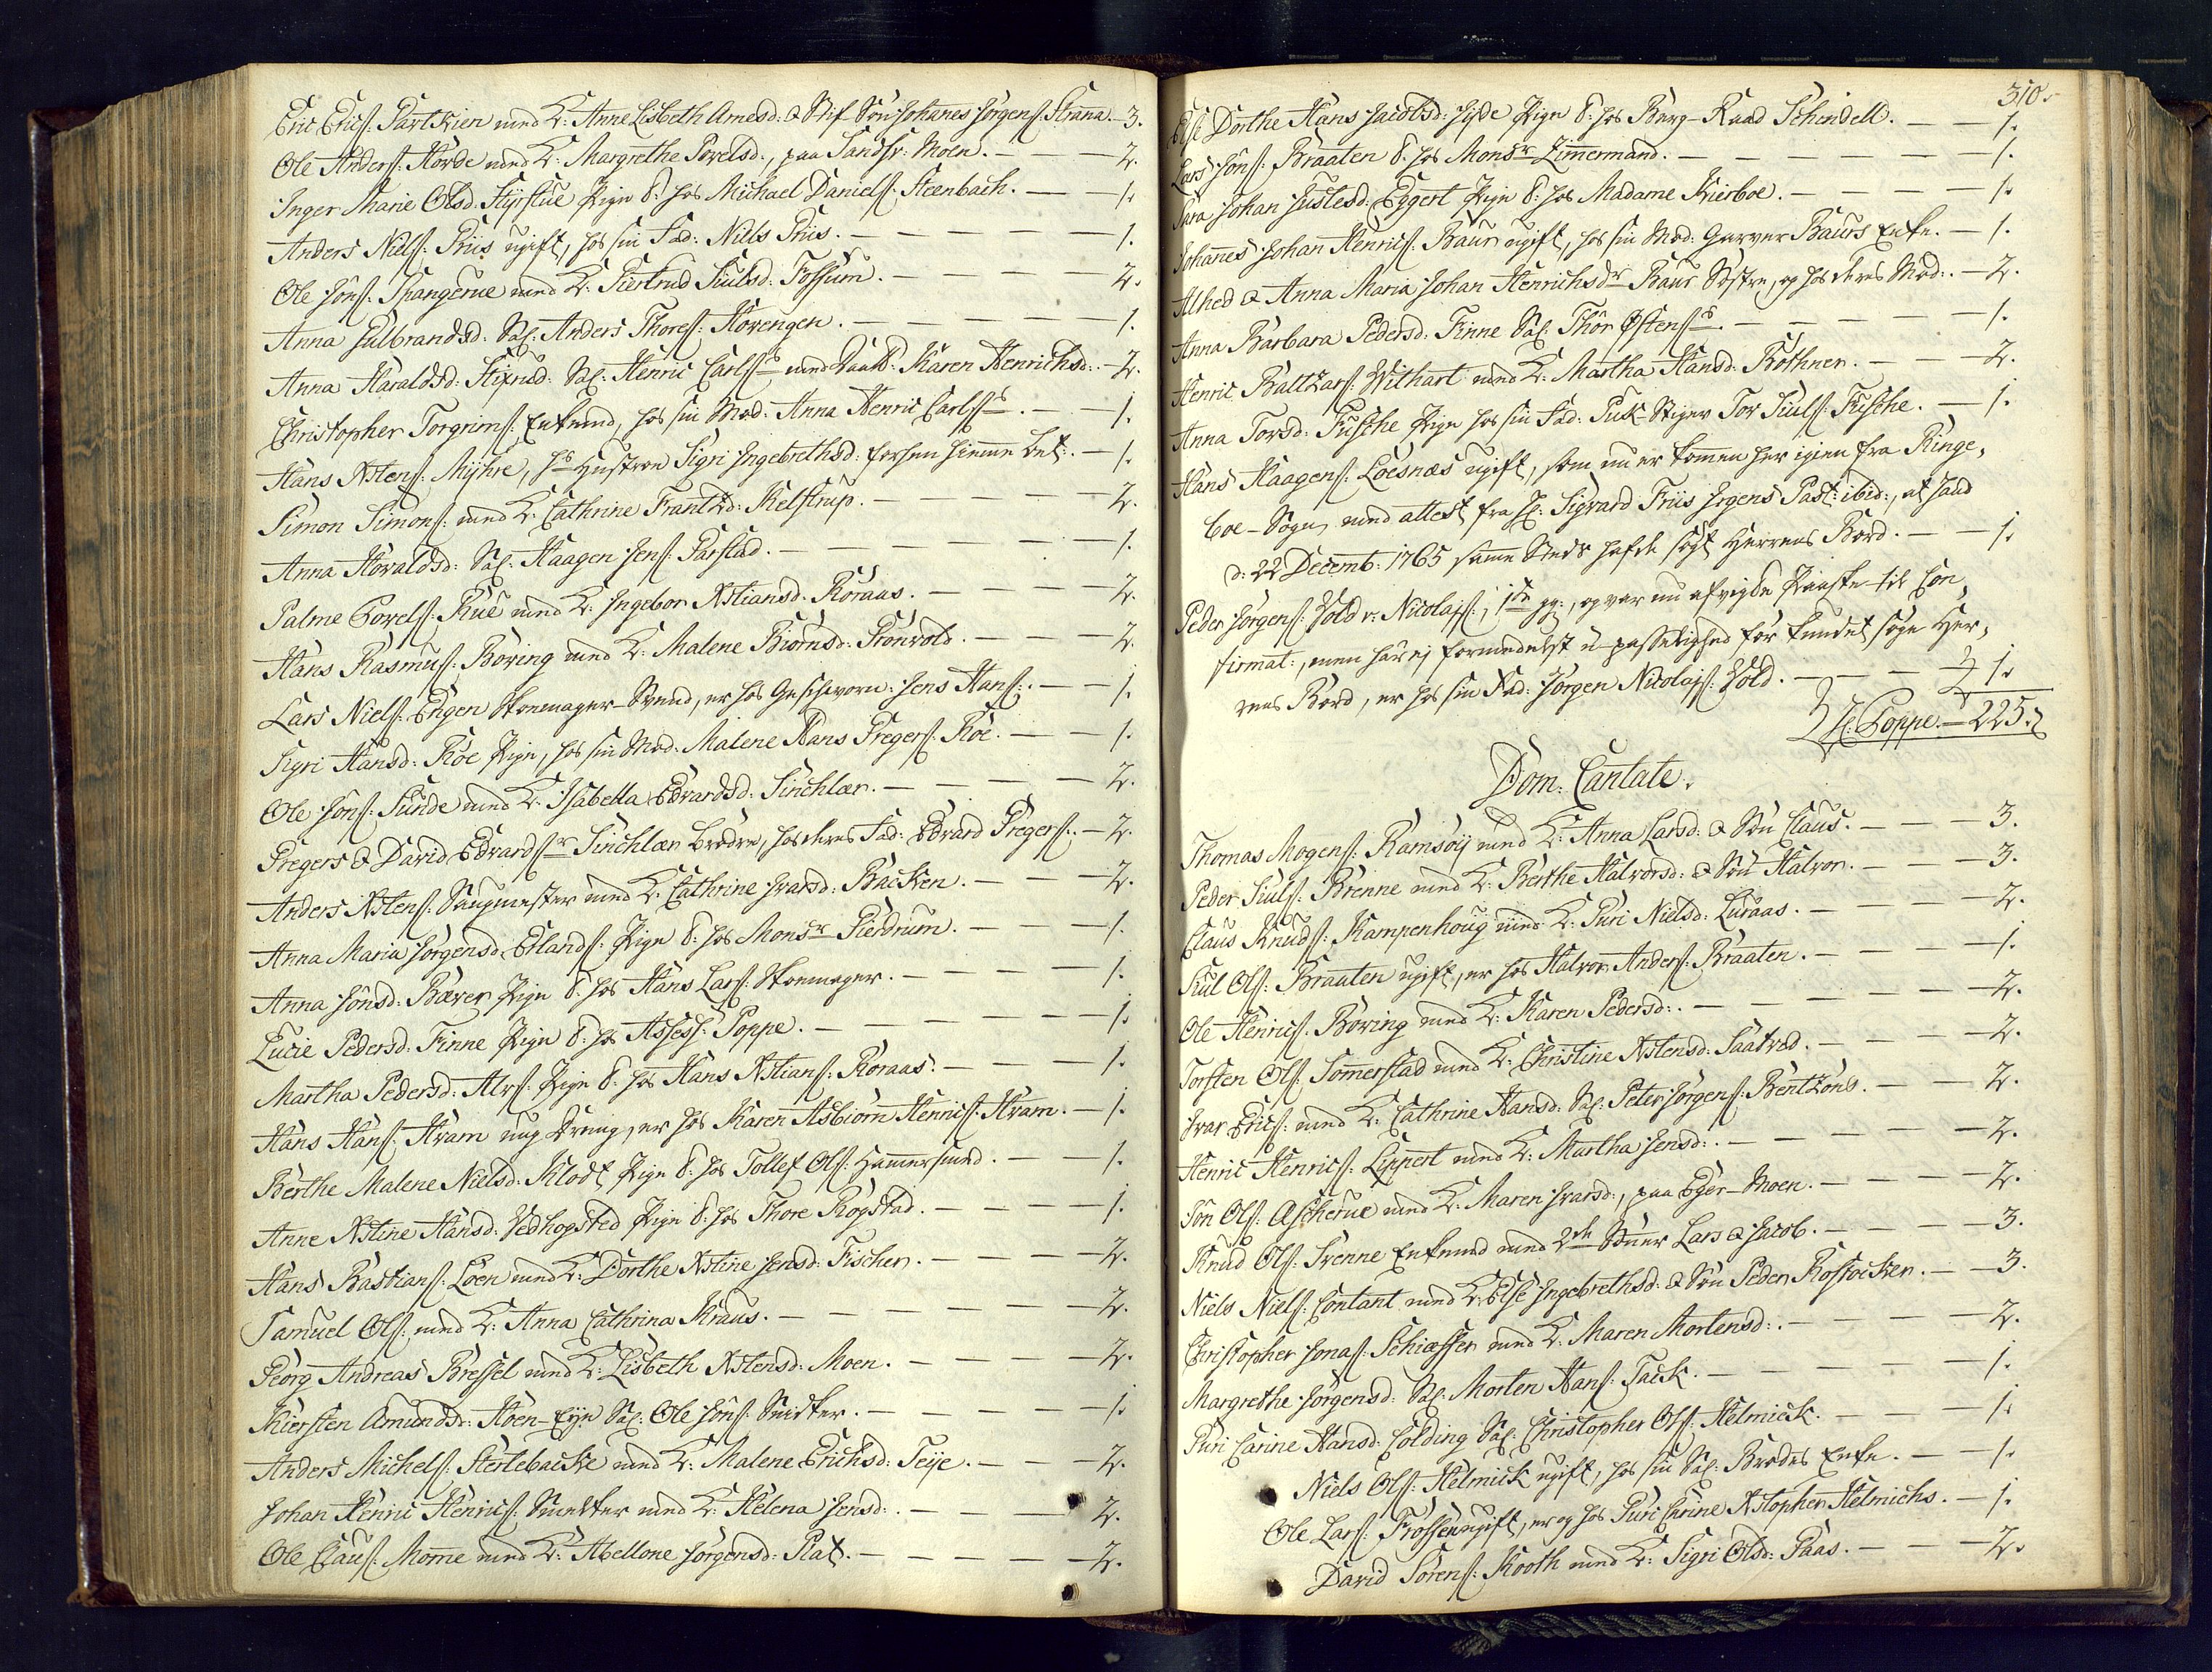 Eric Erics: Partkien med K: Anne Lisbeth Arnesd: & Stif Søn Johanes Jørgens: Strana. — 3.
Ole Anders: Hørde med K: Margrethe Povelsd:, paa Sandsv: Moen. — — 2.
Inger Marie Olsd: Styrstue Pige t: hos Michael Daniels: Steenbach. — — 1.
Anders Niels: Friis ugift, hos sin Fad: Niels Friis. — — — — 1.
Ole Jøns: Spangerue med K: Giertrud Juulsd: Fossum. — — — — 2.
Anna Gulbrandsd: Sal: Anders Thores: Hovengen. — — — — 1.
Anna Haraldsd: Sal: Henric Carls: med Daatt: Karen Henrichsd:. — 2.
Christopher Torgrims: Enkemd, hos sin Mod: Anna Henric Carls:. — — 1.
Hans Xstens: Myhre, hs Hustroe Sigri Ingebrethsd: forhen hiemme bet:. — 1.
Simon Simons: med K: Cathrine Frantzd: Kelstrup. — — — 2.
Anna Hovaldsd: Sal: Haagen Jens: Garstad. — — — — 1.
Palme Povels: Rue med K: Ingebor Xstiansd: Røraas. — — — 2.
Hans Rasmus: Bøving med K: Malene Biørnsd: Grønvold. — — 2.
Lars Niels: Engen Skoemager-Svend, er hos Geschworn: Jens Hans:. — — 1.
Sigri Hansd: Røe Pige, hos sin Mod: Malene Hans Gregers: Røe. — — 1.
Ole Jøns: Sunde med K: Isabella Edvardsd: Sinchlær. — — — 2.
Gregers & David Edvards: Sinchlær brødre, hos deres Fad: Edvard Gregers:. — 2.
Anders Xstens: Saugmester med K: Cathrine Ivarsd: Backen. — — — 2.
Anna Maria Jørgensd: Erlands: Pige t: hos Monsr Gierdrum. — — — 1.
Anna Jønsd: Bæver Pige t: hos Hans Lars: Skoemager. — — — 1.
Lucie Pedersd: Finne Pige t: hos Assess: Poppe. — — — — 1.
Martha Pedersd: Alvs: Pige t: hos Hans Xstians: Røraas. — — — 1.
Hans Hans: Hram ung Dreng, er hos Karen Asbiørn Henrics: Hram. — 1.
Berthe Malene Nielsd: Klodt Pige t: hos Tollef Ols: Hammersmed. — — 1.
Anne Xstine Hansd: Vedhogsted Pige t: hos Thore Rogstad. — — — 1.
Hans Bastians: Loen med K: Dorthe Xstine Jensd: Fischer. — — — 2.
Samuel Ols: med K: Anna Cathrina Kraus. — — — — 2.
Georg Andreas Bressel med K: Lisbeth Xstensd: Moen. — — — 2.
Kiersten Amundsd: Hoen-Eye Sal: Ole Jøns: Snidker. — — — 1.
Anders Michels: Stertebacke med K: Malene Erichsd: Teye. — — — 2.
Johan Henric Henrics: Smelter med K: Helena Jensd:. — — — 2.
Ole Claus: Momme med K: Abellone Jørgensd: Plat. — — — 2.
310.
Else Dorthe Hans Jacobsd: Hyde Pige t: hos Berg-Raad Schindell. — — 1.
Lars Jøns: Braaten t: hos Monsr Zimmermand. — — — — 1.
Sara Johan Justesd: Eggert Pige t: hos Madame Kierboe. — — — 1.
Johannes Johan Henrics: Baur ugift, hos sin Mod: Garver Baurs Enke. — 1.
Alhed & Anna Maria Johan Henrichsdr Baur Søstre, og hos deres Mod:. — 2.
Anna Barbara Pedersd: Finne Sal: Thor Østens:. — — — 1.
Henric Balttzars: Withart med K: Martha Hansd: Bøthner. — — — 2.
Anna Torsd: Fusche Pige hos sin Fad: Puk-Stiger Tor Juuls: Fusche. — 1.
Hans Haagens: Loesnæs ugift, som nu er kommen her igien fra Ringe,
boe-Sogn, med attest fra Hr: Sigvard Friis Sogens Past: ibid:, at hand
d: 22 Decemb: 1765 samme Steds hafde søgt Herrens Bord. — — 1.
Peder Jørgens: Gold v: Nicolajs:, 1ste gg:, og var nu afvigte Paaske til Con,
firmat:, men har ej formedelst u-passelighed før kundet søge Her,
rens Bord, er hos sin Fad: Jørgen Nicolajs: Gold. — — — 1.
Hr: Poppe. — 225.
Dom. Cantate.
Thomas Mogens: Ramsøy med K: Anna Larsd: & Søn Claus. — — — 3.
Peder Juuls: Brenne med K: Berthe Halvorsd: & Søn Halvor. — — — 3.
Claus Knuds: Kampenhoug med K: Guri Nielsd: Luraas. — — — 2.
Juul Ols: Braaten ugift, er hos Halvor Anders: Braaten. — — — 1.
Ole Henrics: Bøving med K: Karen Pedersd:. — — — — 2.
Torsten Ols: Sommerstad med K: Christine Xstensd: Saatved. — — — 2.
Ivar Erics: med K: Cathrine Hansd: Sal: Peter Jørgens: Bentzøns. — — 2.
Henric Henrics: Lippert med K: Martha Jensd:. — — — — 2.
Jøn Ols: Ascherue med K: Maren Ivarsd:, paa Eger-Moen. — — — 2.
Knud Ols: Svenne Enkemd med 2de Sønner Lars & Jacob. — — — 3.
Niels Niels: Contant med K: Else Ingebrethsd: & Søn Peder Rostocker. — — 3.
Christopher Jonas: Schiæffer med K: Maren Mortensd:. — — — 2.
Margrethe Jørgensd: Sal: Morten Hans: Tack. — — — — 1.
Guri Carine Hansd: Colding Sal: Christopher Ols: Helmick. — — — 1.
Niels Ols: Helmick ugift, hos sin Sal: Broders Enke. — — 1.
Ole Lars: Frossen ugift, er og hos Guri Carine Xstopher Helmichs. — 1.
David Sørens: Kooth med K: Sigri Olsd: Gaas. — — — 2.